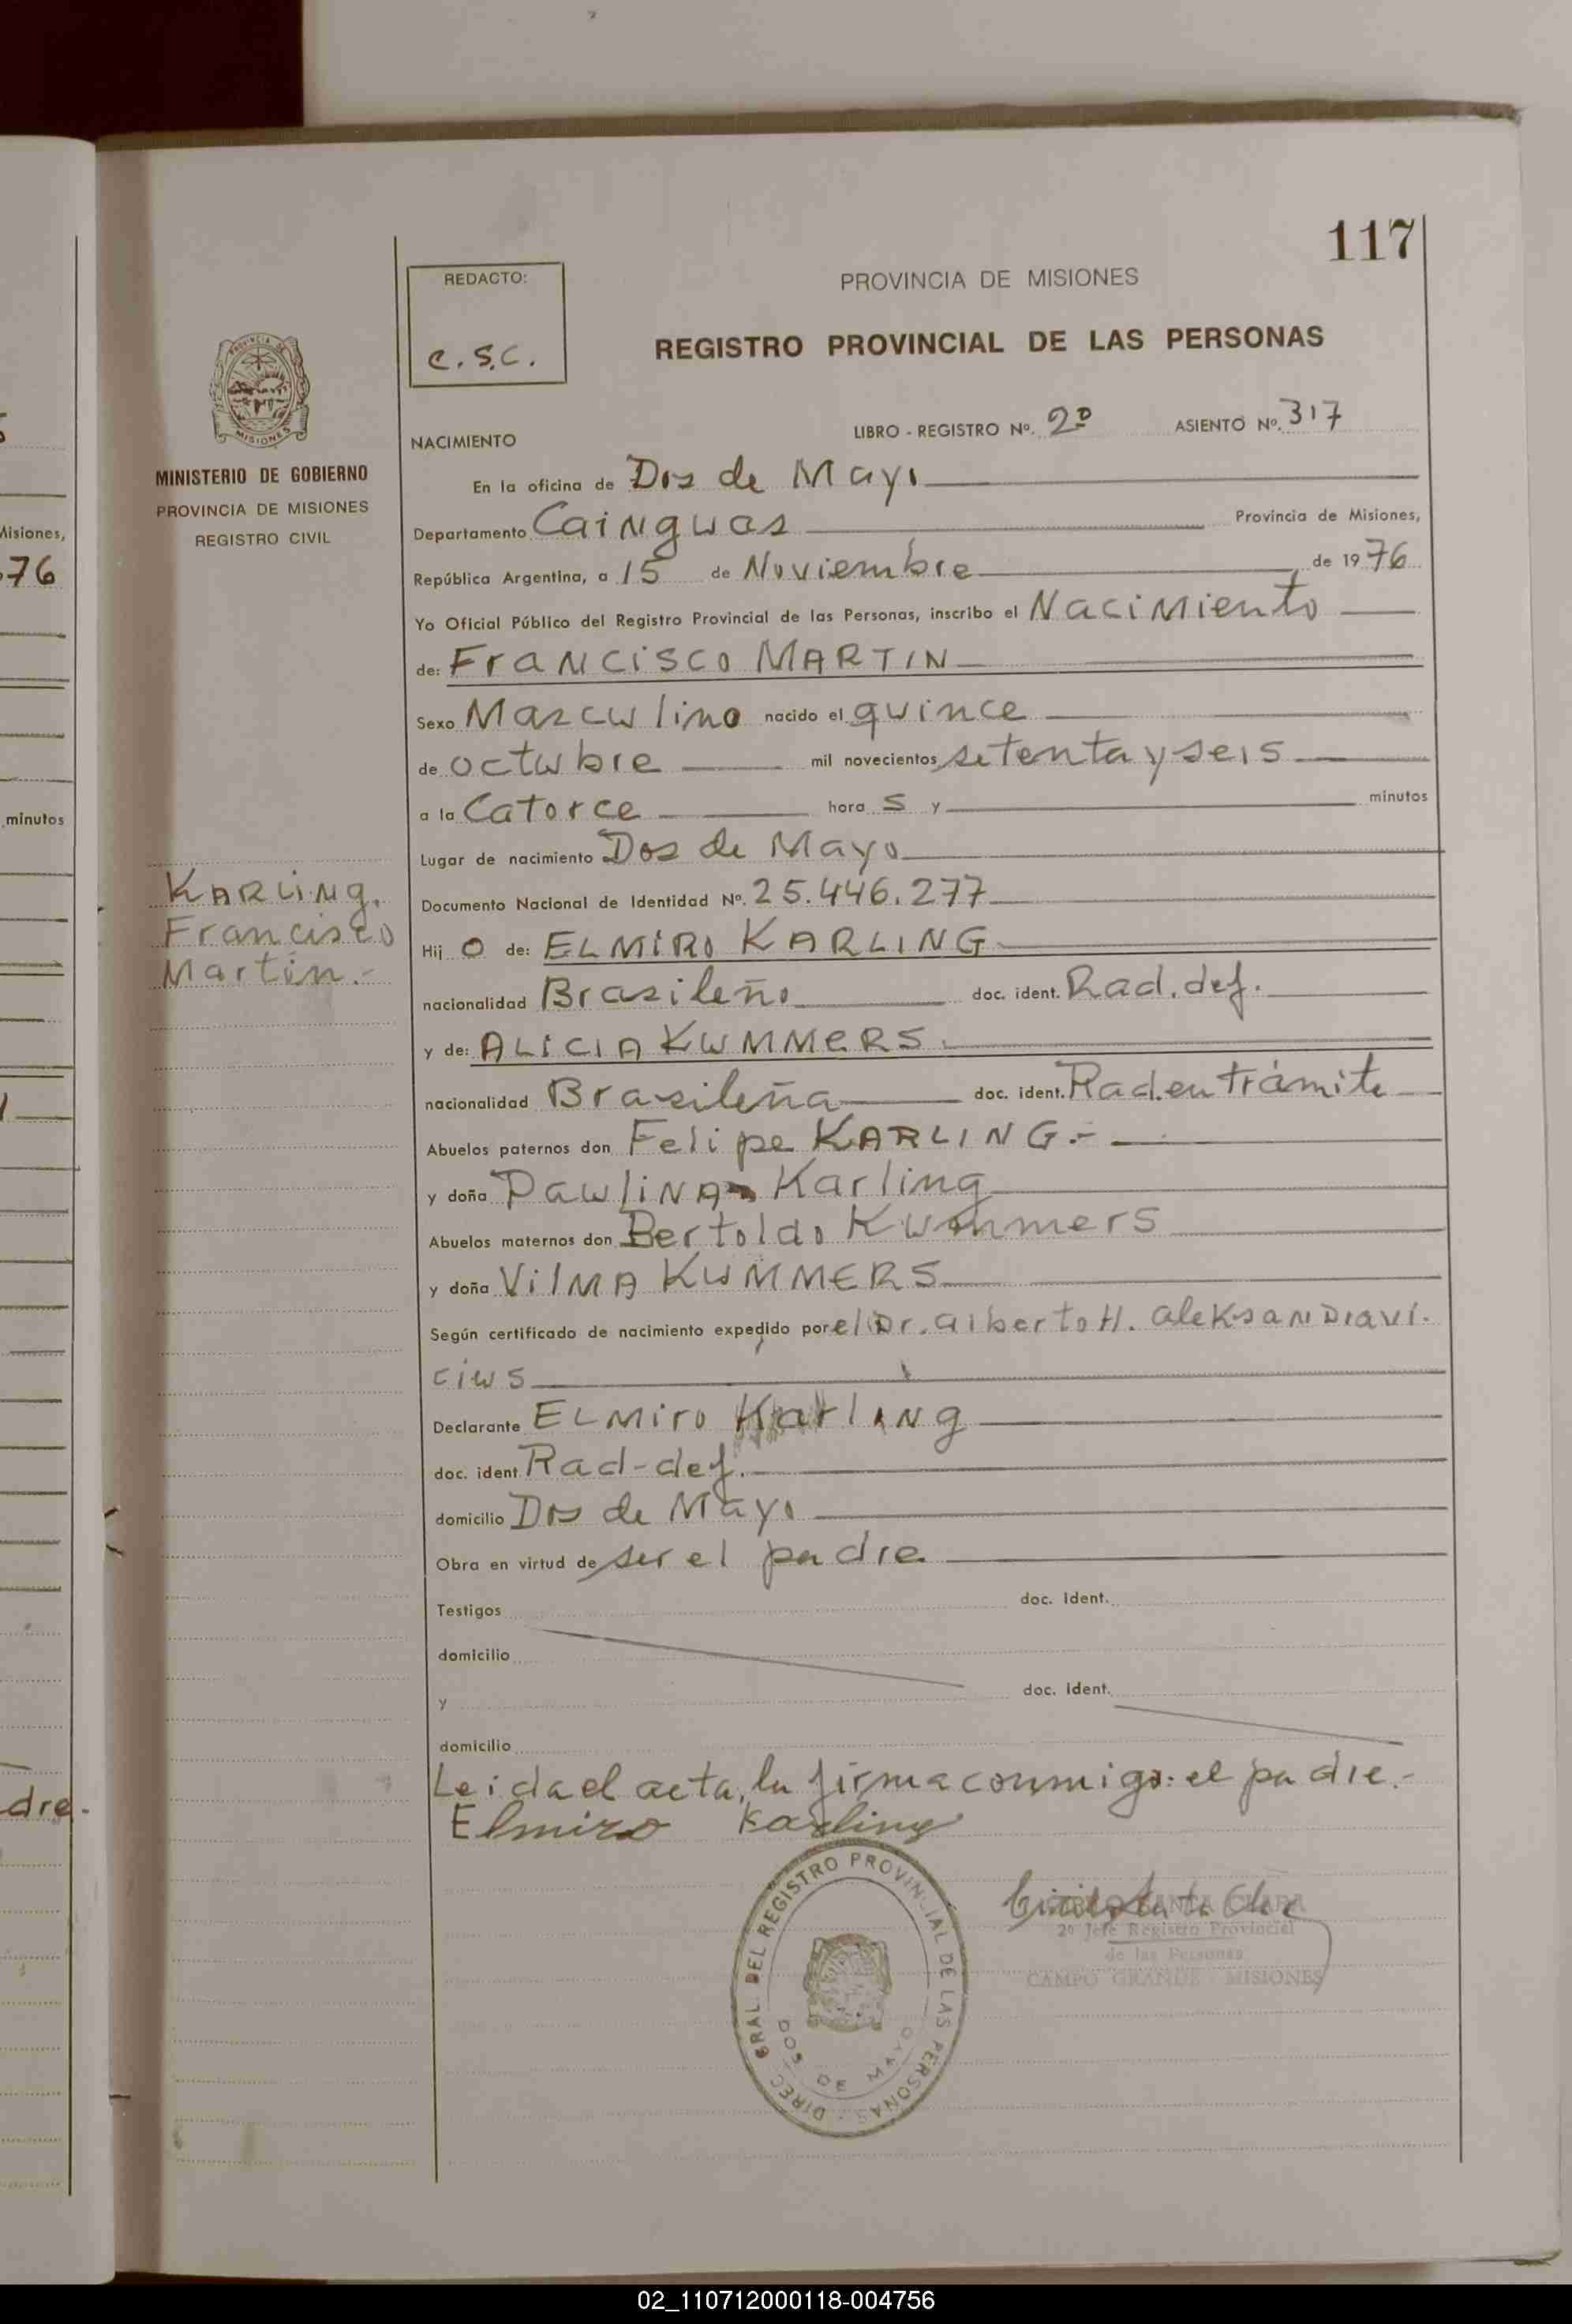 117
REDACTO:
C.S.C.
PROVINCIA DE MISIONES
REGISTRO PROVINCIAL DE LAS PERSONAS
NACIMIENTO
LIBRO - REGISTRO Nº. 2º ASIENTO Nº. 317
MISIONES
MINISTERIO DE GOBIERNO
PROVINCIA DE MISIONES
REGISTRO CIVIL
En la oficina de Dos de Mayo
Departamento Cainguas Provincia de Misiones,
República Argentina, a 15 de Noviembre de 1976
Yo Oficial Público del Registro Provincial de las Personas, inscribo el Nacimiento
de: Francisco MARTIN
Sexo Masculino nacido el quince
de octubre mil novecientos setenta y seis
a la Catorce hora s y minutos
Lugar de nacimiento Dos de Mayo
Documento Nacional de Identidad Nº. 25.446.277
KARLING.
Francisco
Martin.-
Hij o de: ELMIRO KARLING
nacionalidad Brasileño doc. ident. Rad. def.
y de: ALICIA KUMMERS.
nacionalidad Brasileña doc. ident. Rad. en trámite
Abuelos paternos don Felipe KARLING.-
y doña Paulina Karling
Abuelos maternos don Bertoldo Kummers
y doña Vilma KUMMERS
Según certificado de nacimiento expedido por el Dr. Alberto H. Aleksandravi.
cius
Declarante Elmiro Karling
doc. ident. Rad-def.
domicilio Dos de Mayo
Obra en virtud de ser el padre
Testigos doc. ident.
domicilio
y doc. ident.
domicilio
Leida el acta, la firma conmigo: el padre.-
Elmiro Karling
DIREC. GRAL. DEL REGISTRO PROVINCIAL DE LAS PERSONAS
DOS DE MAYO
SANTA CLARA
2º Jefe Registro Provincial
de las Personas
CAMPO GRANDE - MISIONES
Misiones,
76
minutos
dre.-
02_110712000118-004756